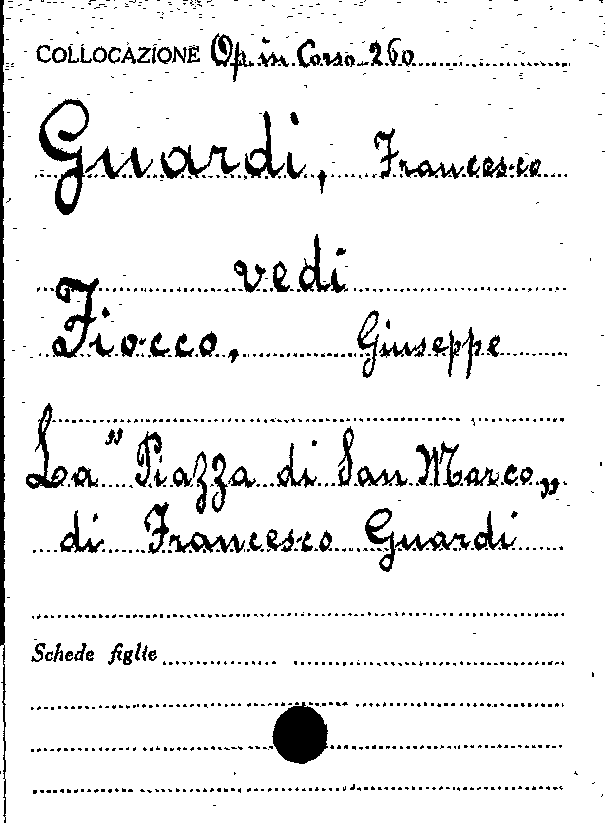 COLLOCAZIONE Op. in Corso 260
Guardi, Francesco
vedi
Fiocco, Giuseppe
La "Piazza di San Marco„
di Francesco Guardi
Schede figlie